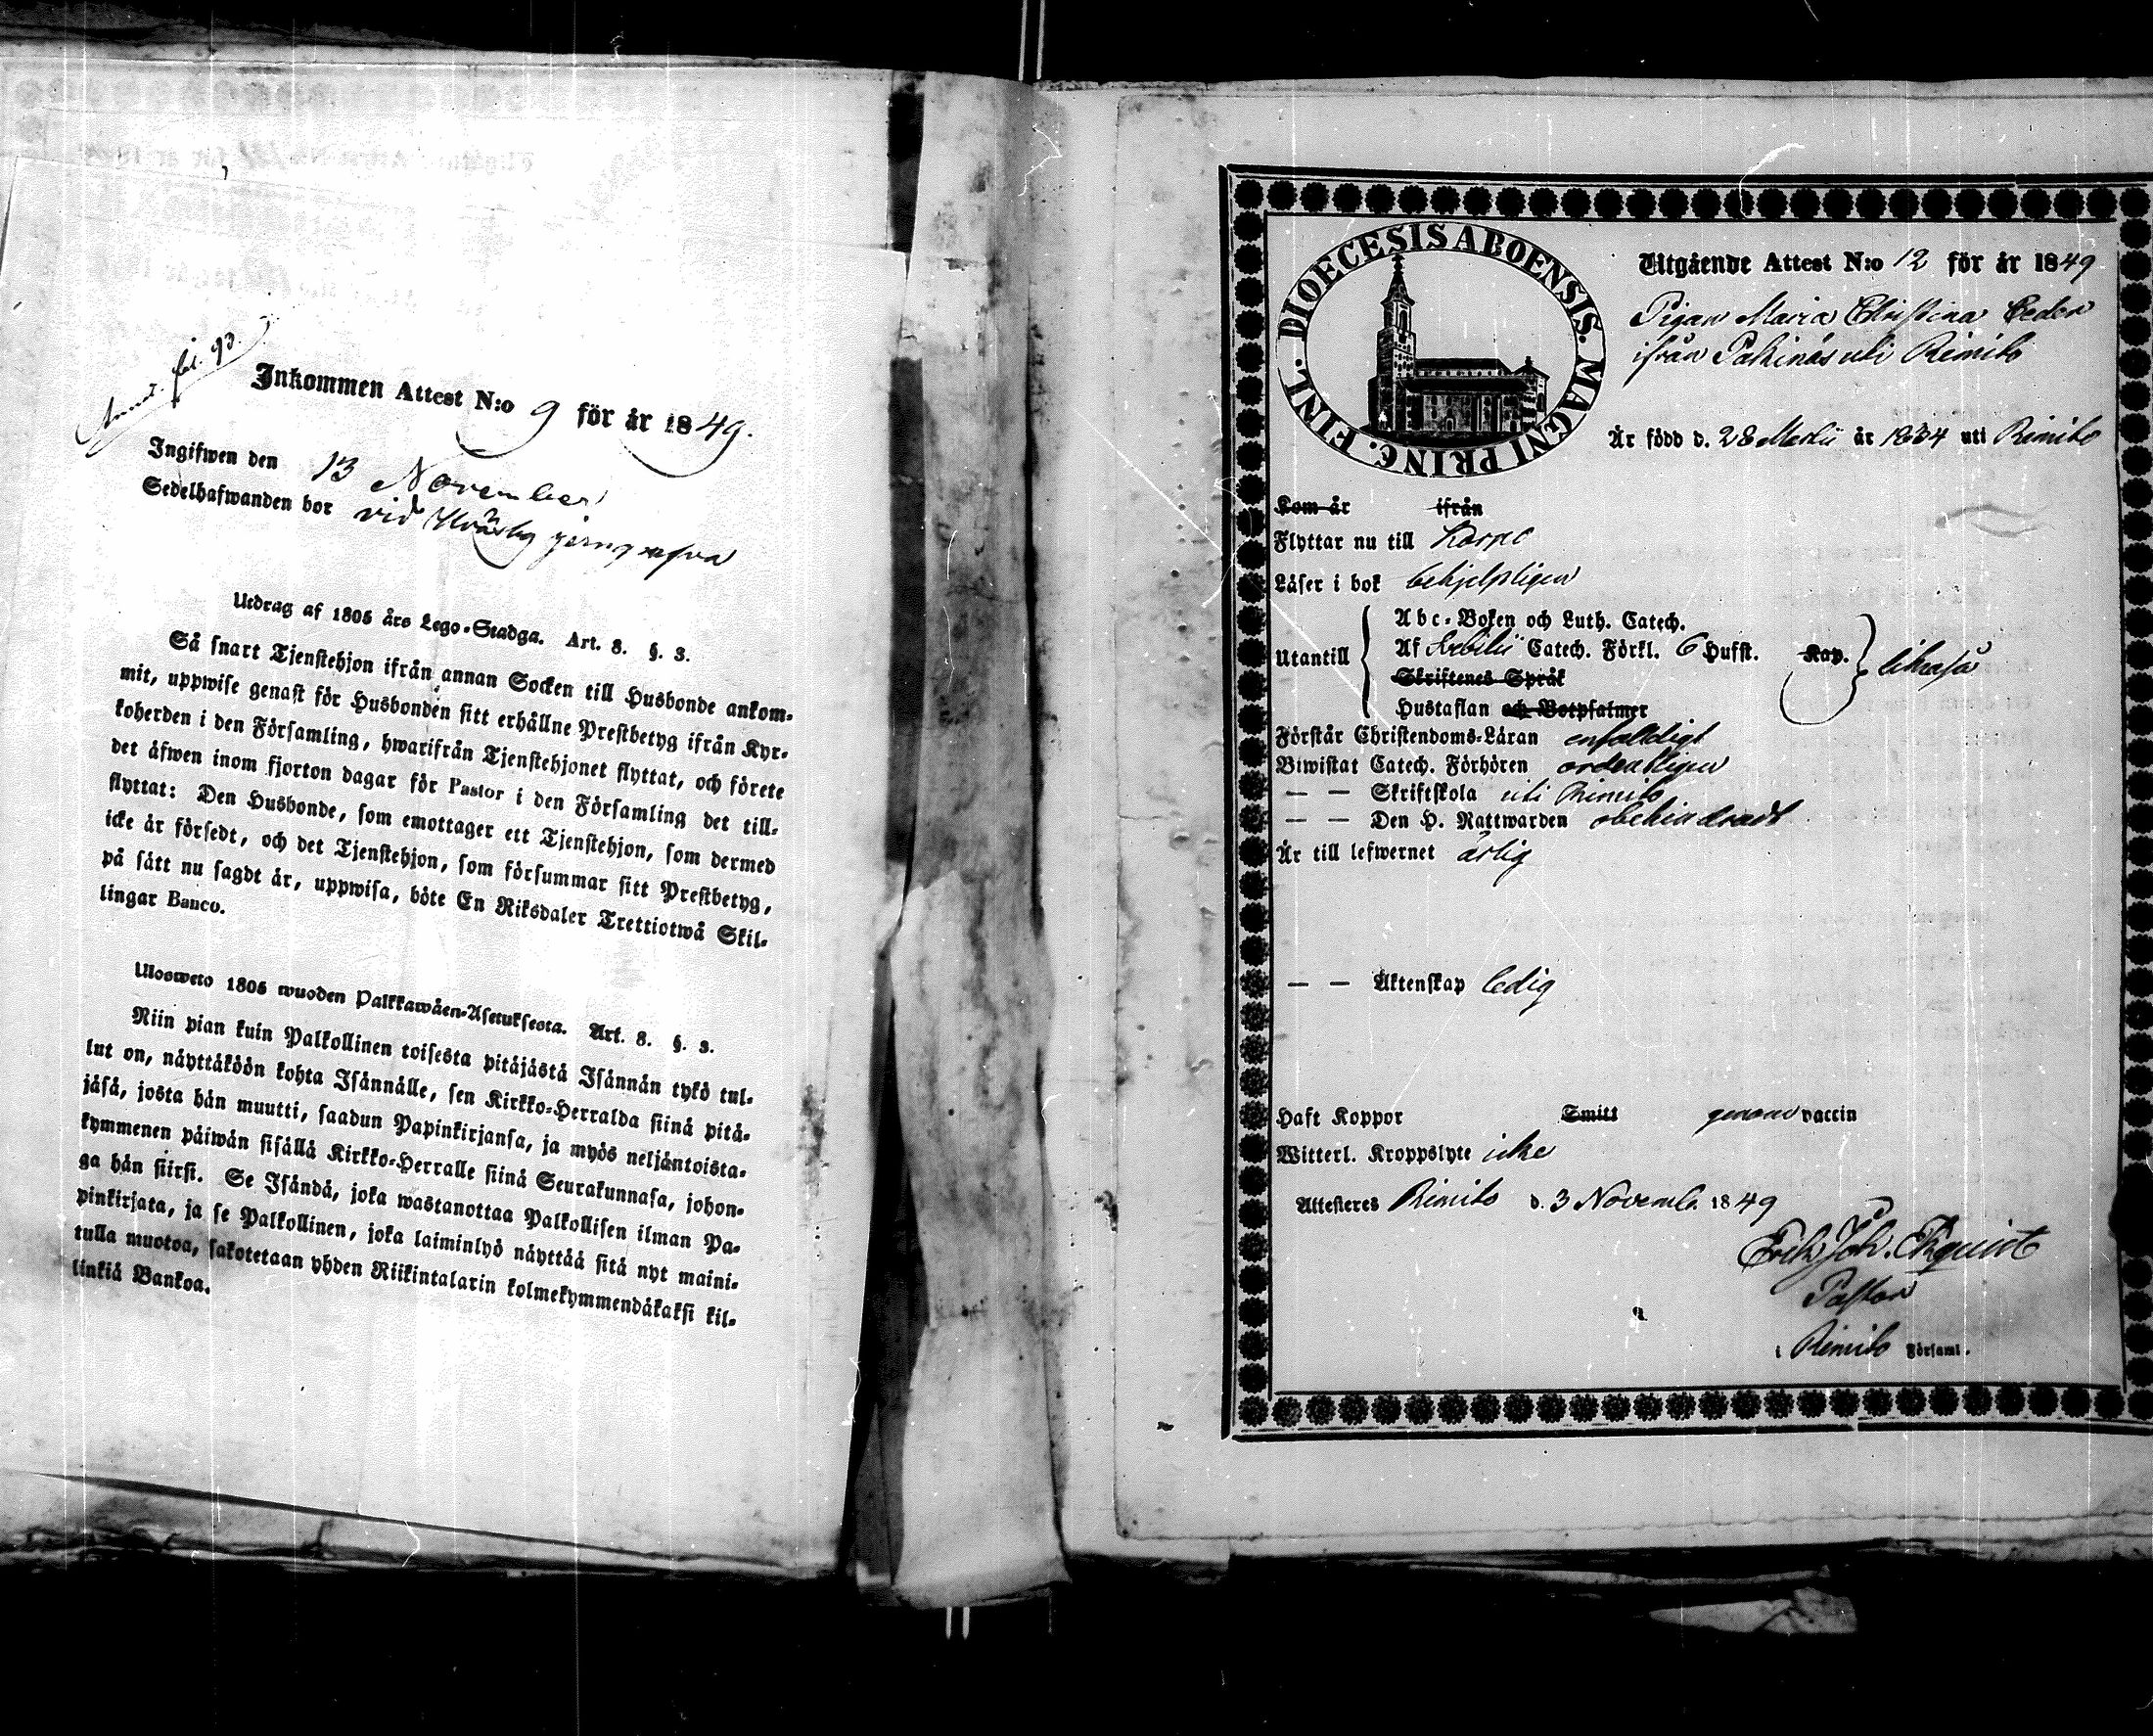 Annot. fol. 93.
Inkommen Attest N:o 9 för år 1849.
Ingifwen den 13 November
Sedelhafwanden bor vid
Utdrag af 1805 års Lego-Stadga. Art. 8. §. 3.
Så snart Tjenstehjon ifrån annan Socken till Husbonde ankom-
mit, uppwise genast för Husbonden sitt erhållne Prestbetyg ifrån Kyr-
koherden i den Församling, hwarifrån Tjenstehjonet flyttat, och förete
det åfwen inom fjorton dagar för Pastor i den Församling det till-
flyttat: Den Husbonde, som emottager ett Tjenstehjon, som dermed
icke år försedt, och det Tjenstehjon, som försummar sitt Prestbetyg,
på sått nu sagdt år, uppwisa, böte En Riksdaler Trettiotwå Skil-
lingar Banco.
Ulosweto 1805 wuoden Palkkawåen-Asetuksesta. Art. 8. §. 3.
Niin pian kuin Palkollinen toisesta pitåjåstå Isånnån tykö tul-
lut on, nåyttåköön kohta Isånnålle, sen Kirkko-Herralda siinå pitå-
jåså, josta hån muutti, saadun Papinkirjansa, ja myös neljåntoista-
kymmenen påiwån sisållå Kirkko-Herralle siinå Seurakunnasa, johon-
ga hån siirsi. Se Isåndå, joka wastanottaa Palkollisen ilman Pa-
pinkirjata, ja se Palkollinen, joka laiminlyö nåyttåå sitå nyt maini-
tulla muotoa, sakotetaan yhden Riikintalarin kolmekymmendåkaksi kil-
linkiå Bankoa.
DIOECESIS ABOENSIS. MAGNI PRINC. FINL.
Utgående Attest N:o 12 för år 1849
Pigan Maria Christina Ceder
ifrån Pakinäs uti Rimito
Är född d. 28 Martii år 1834 uti Rimito
Kom år ifrån
Flyttar nu till Korpo
Låser i bok behjelpligen
Abc-Boken och Luth. Catech.
Utantill Af Svebilii Catech. Förkl. 6 Hufst. Kap. likaså
Skriftenes Språk
Hustaflan och Botpsalmer
Förstår Christendoms-Låran enfaldigt
Biwistat Catech. Förhören ordentligen
— — Skriftskola uti Rimito
— — Den H. Nattwarden obehindradt
Är till lefwernet ärlig
— — Äktenskap ledig
Haft Koppor Smitt genom vaccin
Witterl. Kroppslyte icke
Attesteres Rimito d. 3 Novemb. 1849
Erik Joh. Ekquist
Pastor
i Rimito Församl.